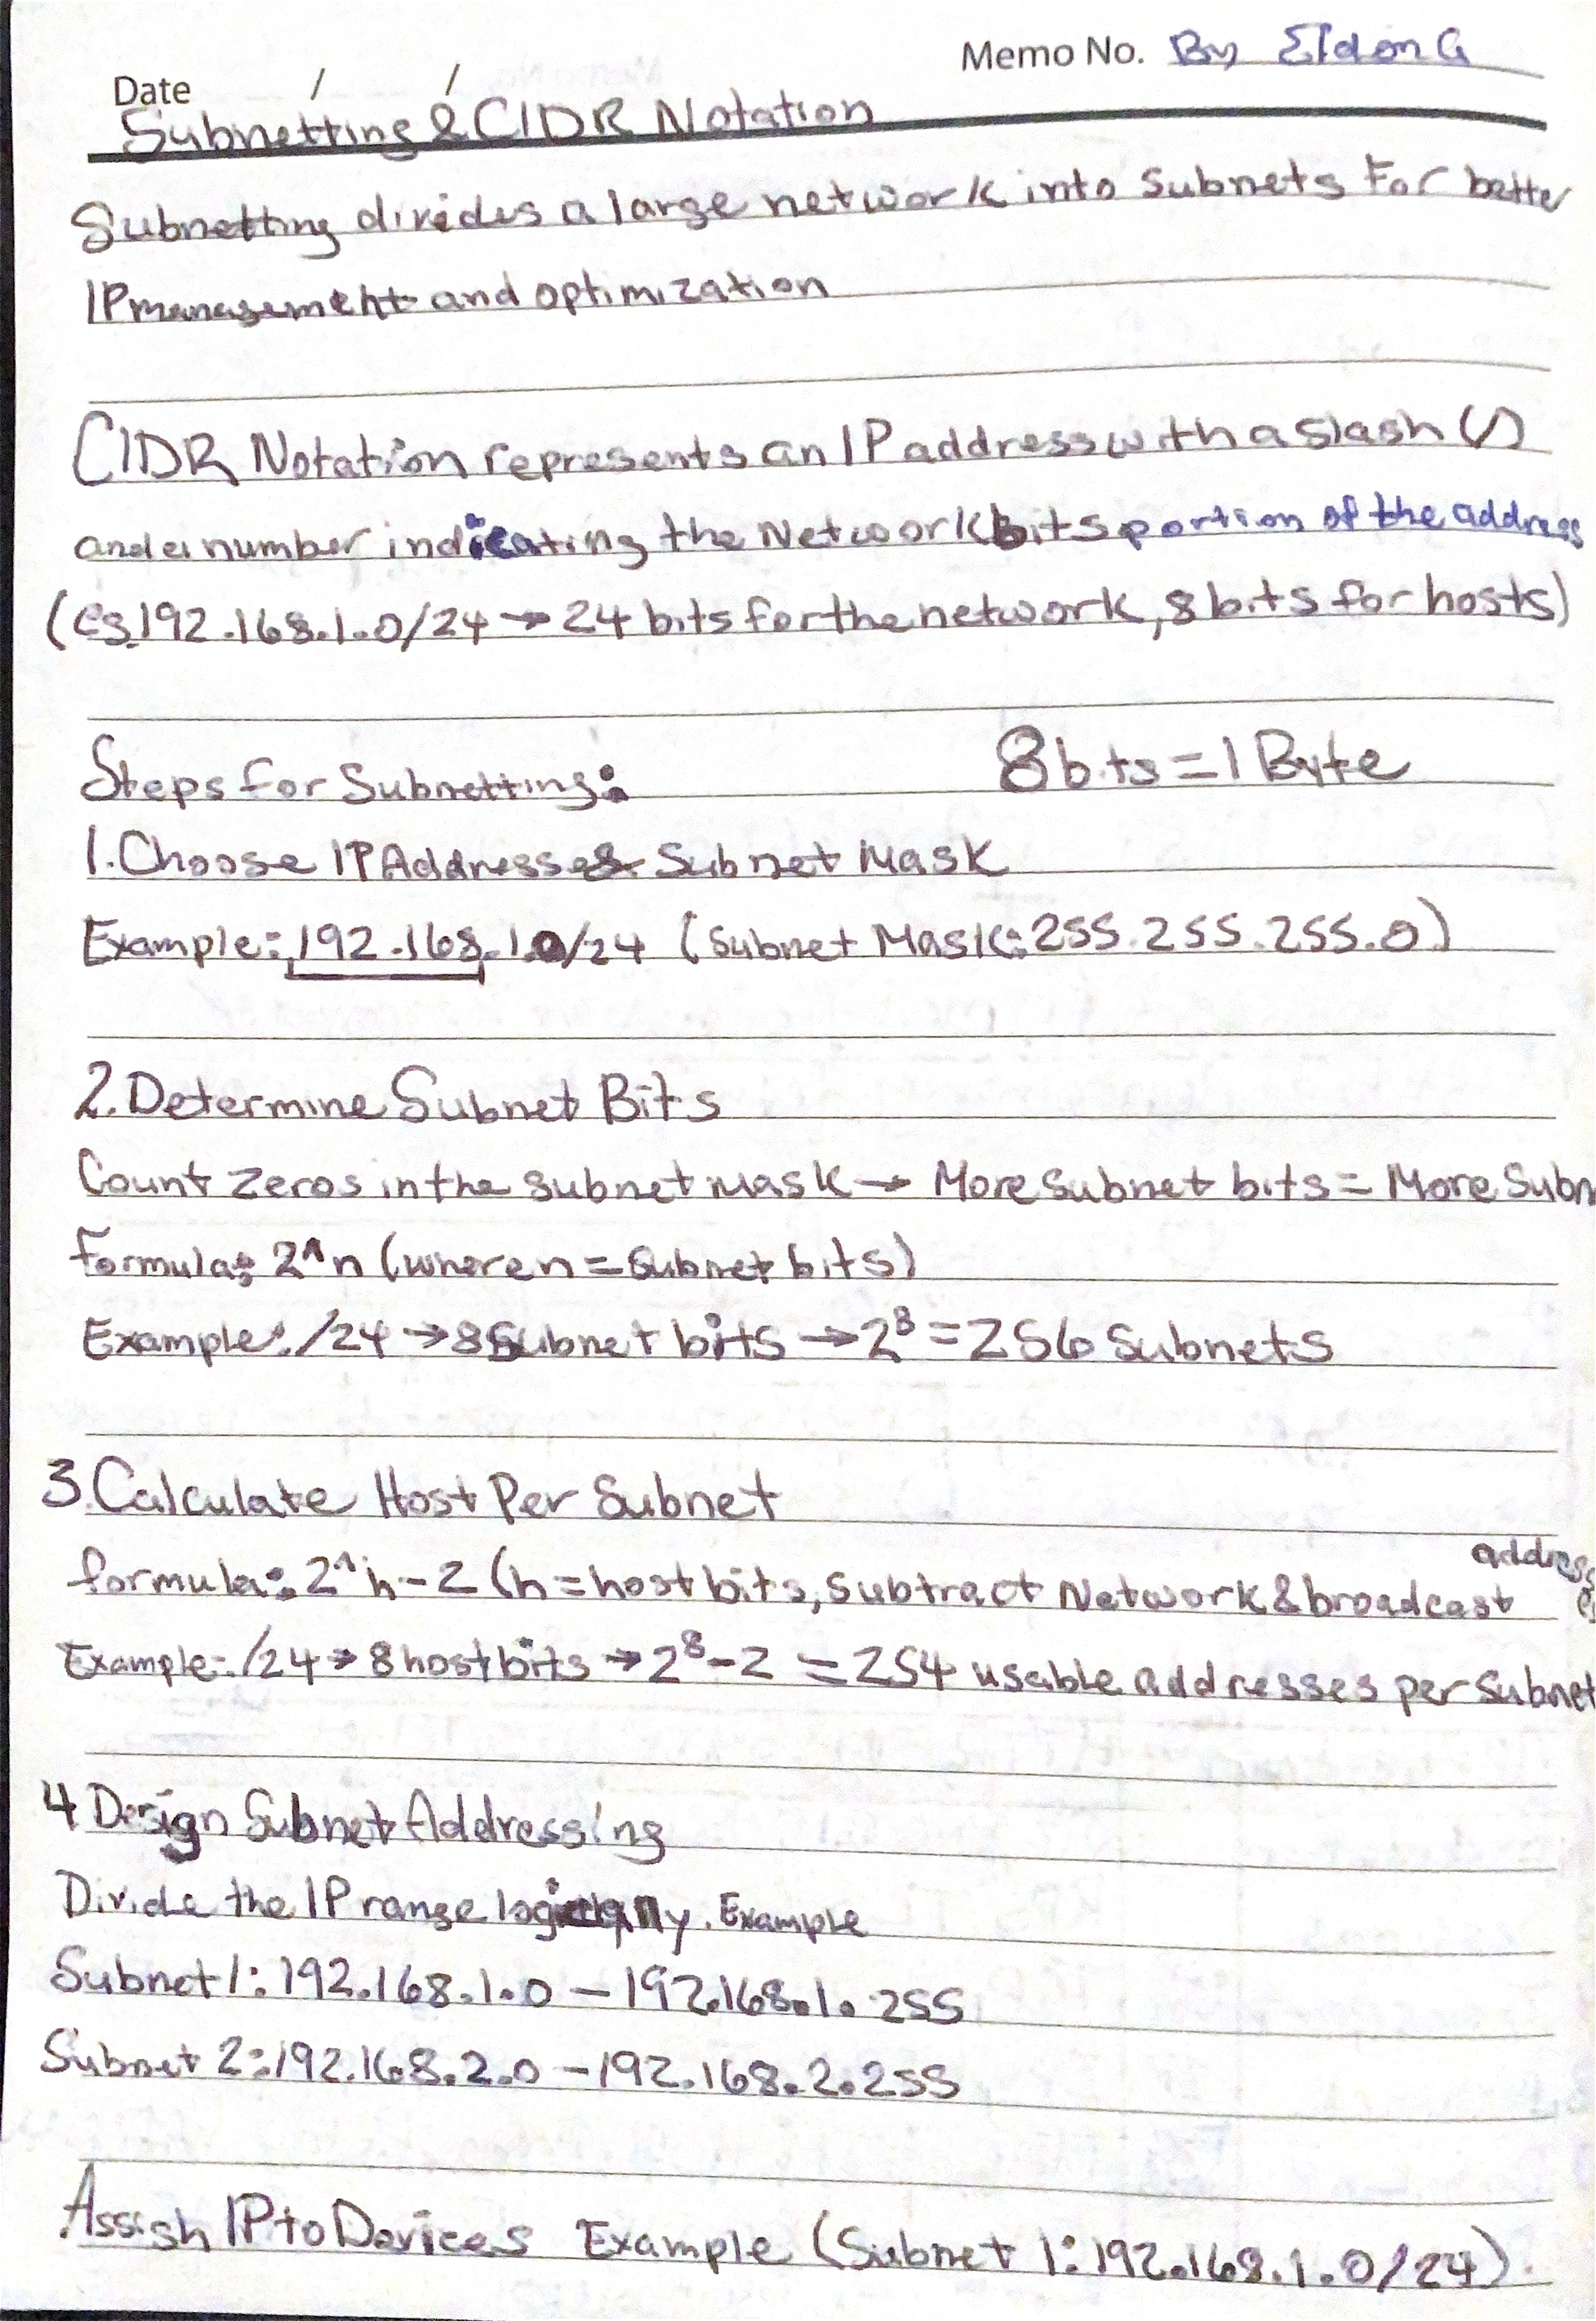 Memo No. By Eldon G
Date / /
Subnetting & CIDR Notation
Subnetting divides a large network into subnets for better
IP management and optimization
CIDR Notation represents an IP address with a slash (/)
and a number indicating the Network bits portion of the address
(eg. 192.168.1.0/24 → 24 bits for the network, 8 bits for hosts)
Steps for Subnetting:
8 bits = 1 Byte
1. Choose IP Address & Subnet Mask
Example: 192.168.1.0/24 (Subnet Mask: 255.255.255.0)
2. Determine Subnet Bits
Count zeros in the subnet mask → More subnet bits = More Subn
Formula: 2^n (where n = subnet bits)
Example: /24 → 8 Subnet bits → 2⁸ = 256 Subnets
3. Calculate Host Per Subnet
formula: 2^h - 2 (h = host bits, subtract Network & broadcast addresses
Example: /24 → 8 host bits → 2⁸ - 2 = 254 usable addresses per subnet
4 Design Subnet Addressing
Divide the IP range logically. Example
Subnet 1: 192.168.1.0 – 192.168.1.255
Subnet 2: 192.168.2.0 – 192.168.2.255
Assign IP to Devices Example (Subnet 1: 192.168.1.0/24).